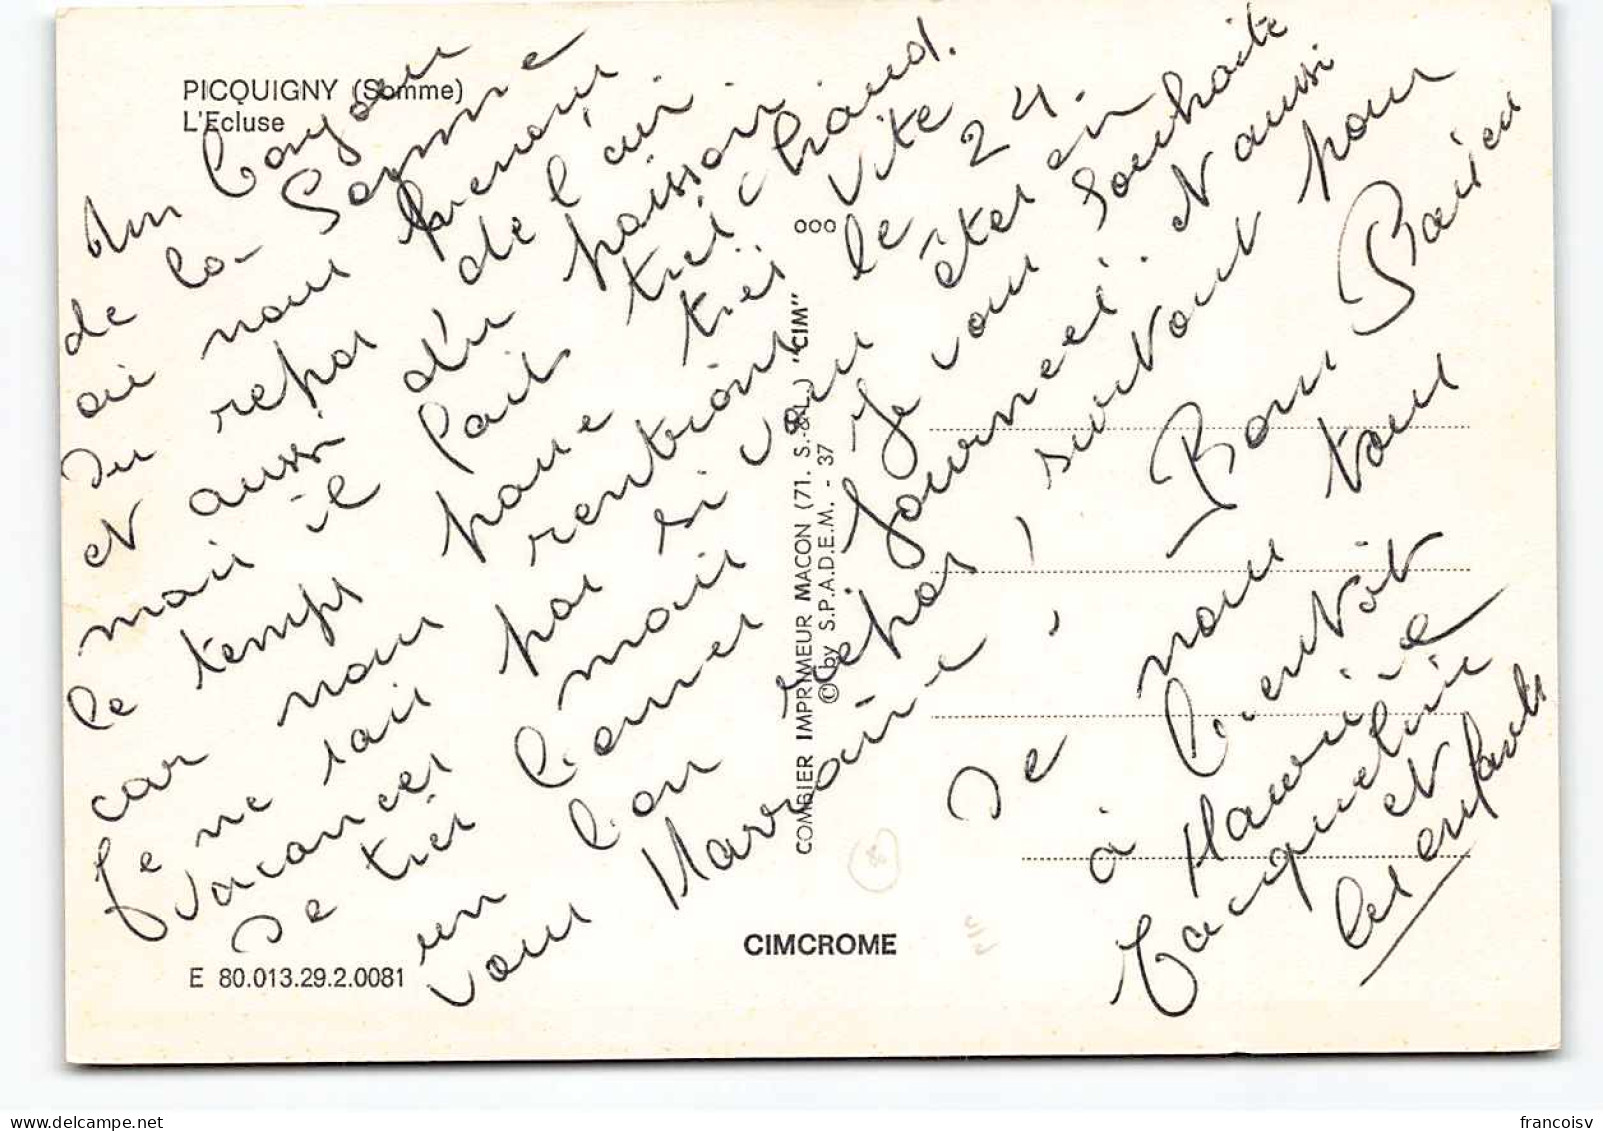 PICQUIGNY (Somme)
L'Ecluse
Un Bonjour
de la Somme
où nous prenons
du repos de l'air
et aussi du poisson
mais il fait très chaud.
le temps passe très vite
car nous rentrions le 24.
Je ne sais pas si vous êtes en
vacances mais je vous souhaite
de très bonnes journées. et aussi
un bon repos, surtout pour
vous Marraine, Bons Baisers
de nous tous
à bientôt
Maurice
Jacqueline
et
les enfants
COMBIER IMPRIMEUR MACON (71. S.-&-L.) "CIM"
© by S.P.A.D.E.M. - 37
ooo
CIMCROME
E 80.013.29.2.0081
francoisv